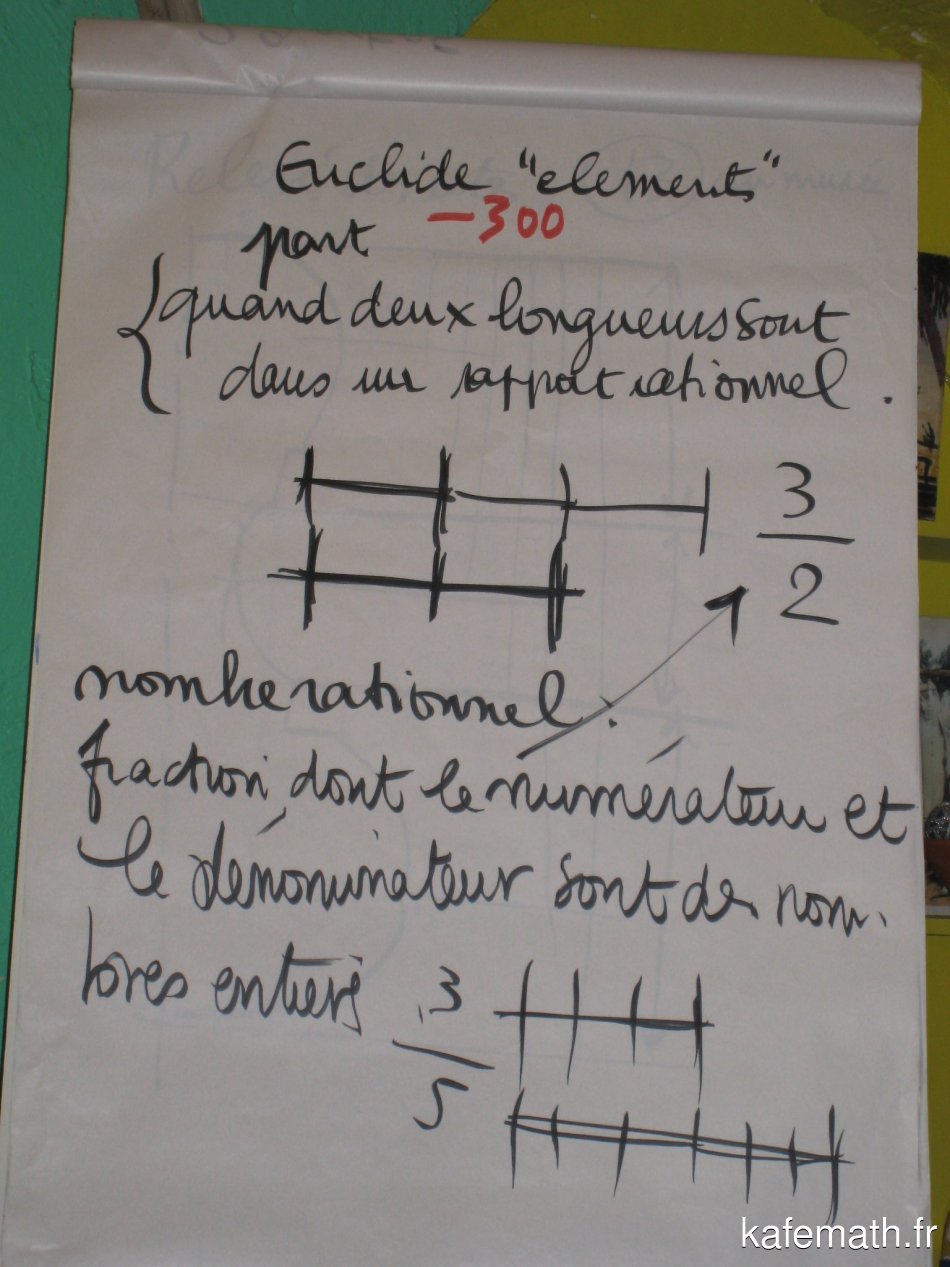 Euclide "elements"
-300
part
quand deux longueurs sont
dans un rapport rationnel.
3
2
nombre rationnel :
fraction, dont le numérateur et
le dénominateur sont des nom-
bres entiers
3
5
kafemath.fr